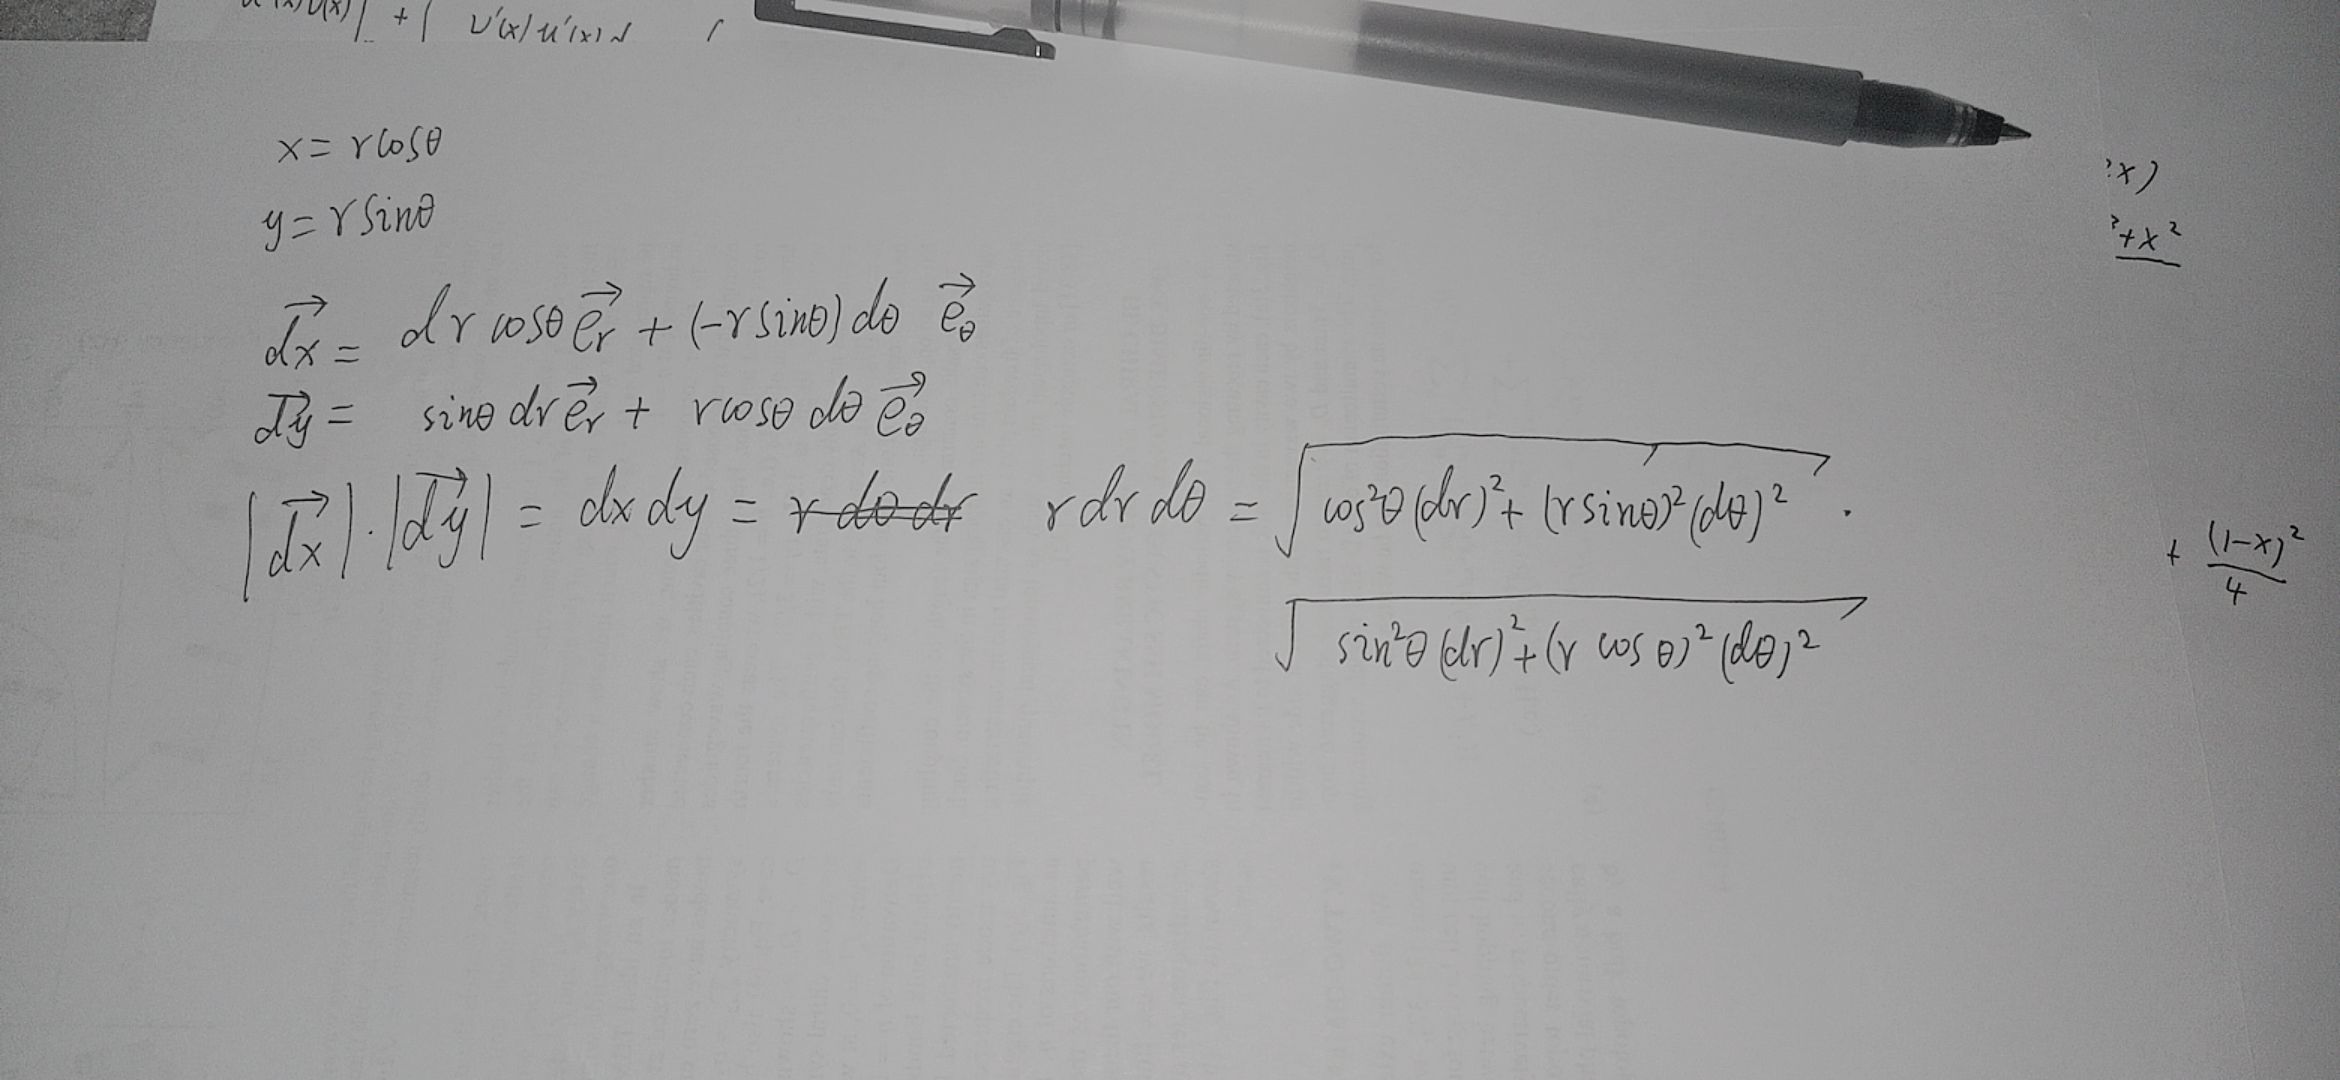 + | v'(x) u'(x)
x = r cosθ
y = r sinθ
d⃗x = dr cosθ e⃗r + (-r sinθ) dθ e⃗θ
d⃗y = sinθ dr e⃗r + r cosθ dθ e⃗θ
|d⃗x| · |d⃗y| = dx dy = r dθ dr r dr dθ = √(cos²θ (dr)² + (r sinθ)² (dθ)²) ·
√(sin²θ (dr)² + (r cos θ)² (dθ)²)
x)
+x²
+ (1-x)²/4